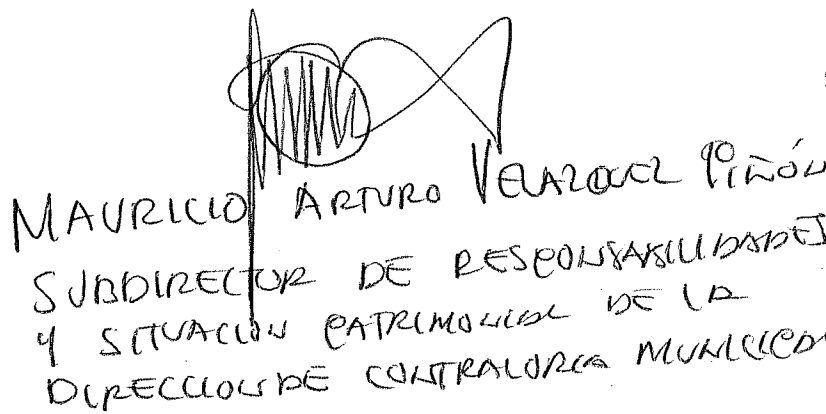 MAURICIO ARTURO VELAZQUEZ PIÑÓN
SUBDIRECTOR DE RESPONSABILIDADES
Y SITUACION PATRIMONIAL DE LA
DIRECCION DE CONTRALORIA MUNICIPAL